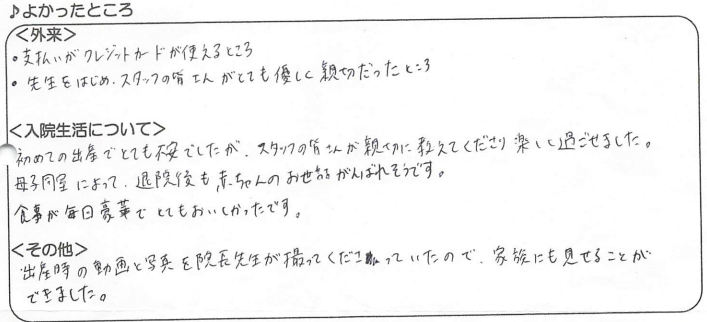 ♪よかったところ
<外来>
・支払いがクレジットカードが使えるところ
・先生をはじめ、スタッフの皆さんがとても優しく親切だったところ
<入院生活について>
初めての出産でとても不安でしたが、スタッフの皆さんが親切に教えてくださり楽しく過ごせました。
母子同室によって、退院後も赤ちゃんのお世話がんばれそうです。
食事が毎日豪華でとてもおいしかったです。
<その他>
出産時の動画と写真を院長先生が撮ってくださっていたので、家族にも見せることが
できました。